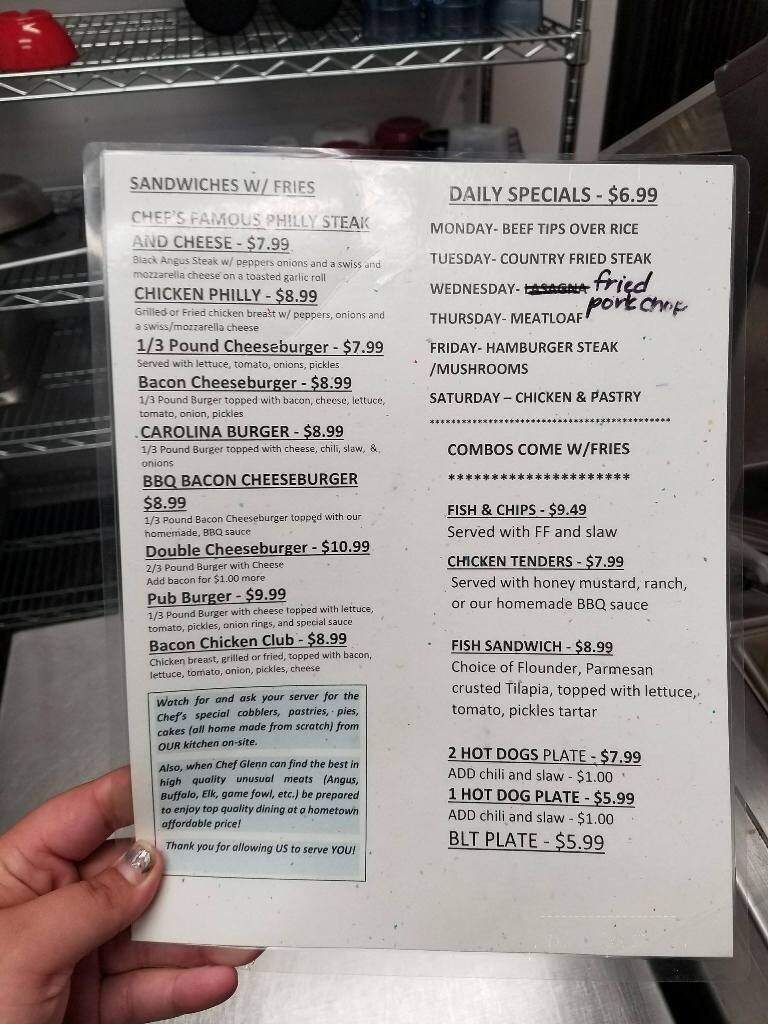 SANDWICHES W/ FRIES
CHEF'S FAMOUS PHILLY STEAK
AND CHEESE - $7.99
Black Angus Steak w/ peppers onions and a swiss and
mozzarella cheese on a toasted garlic roll
CHICKEN PHILLY - $8.99
Grilled or Fried chicken breast w/ peppers, onions and
a swiss/mozzarella cheese
1/3 Pound Cheeseburger - $7.99
Served with lettuce, tomato, onions, pickles
Bacon Cheeseburger - $8.99
1/3 Pound Burger topped with bacon, cheese, lettuce,
tomato, onion, pickles
CAROLINA BURGER - $8.99
1/3 Pound Burger topped with cheese, chili, slaw, &
onions
BBQ BACON CHEESEBURGER
$8.99
1/3 Pound Bacon Cheeseburger topped with our
homemade, BBQ sauce
Double Cheeseburger - $10.99
2/3 Pound Burger with Cheese
Add bacon for $1.00 more
Pub Burger - $9.99
1/3 Pound Burger with cheese topped with lettuce,
tomato, pickles, onion rings, and special sauce
Bacon Chicken Club - $8.99
Chicken breast, grilled or fried, topped with bacon,
lettuce, tomato, onion, pickles, cheese
Watch for and ask your server for the
Chef's special cobblers, pastries, pies,
cakes (all home made from scratch) from
OUR kitchen on-site.
Also, when Chef Glenn can find the best in
high quality unusual meats (Angus,
Buffalo, Elk, game fowl, etc.) be prepared
to enjoy top quality dining at a hometown
affordable price!
Thank you for allowing US to serve YOU!
DAILY SPECIALS - $6.99
MONDAY- BEEF TIPS OVER RICE
TUESDAY- COUNTRY FRIED STEAK
WEDNESDAY- LASAGNA fried
pork chop
THURSDAY- MEATLOAF
FRIDAY- HAMBURGER STEAK
/MUSHROOMS
SATURDAY – CHICKEN & PASTRY
**********************************************
COMBOS COME W/FRIES
*********************
FISH & CHIPS - $9.49
Served with FF and slaw
CHICKEN TENDERS - $7.99
Served with honey mustard, ranch,
or our homemade BBQ sauce
FISH SANDWICH - $8.99
Choice of Flounder, Parmesan
crusted Tilapia, topped with lettuce,
tomato, pickles tartar
2 HOT DOGS PLATE - $7.99
ADD chili and slaw - $1.00
1 HOT DOG PLATE - $5.99
ADD chili and slaw - $1.00
BLT PLATE - $5.99